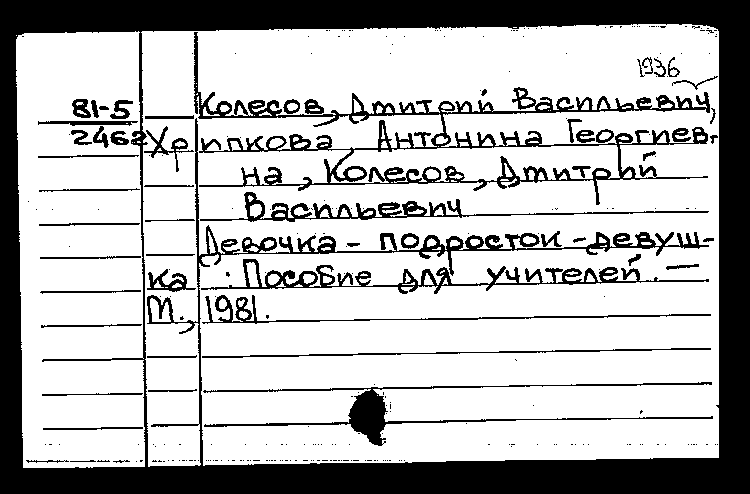 1936
81-5 Колесов, Дмитрий Васильевич,
2462 Хрипкова, Антонина Георгиев-
на, Колесов, Дмитрий
Васильевич
Девочка - подросток - девуш-
ка : Пособие для учителей. —
М., 1981.